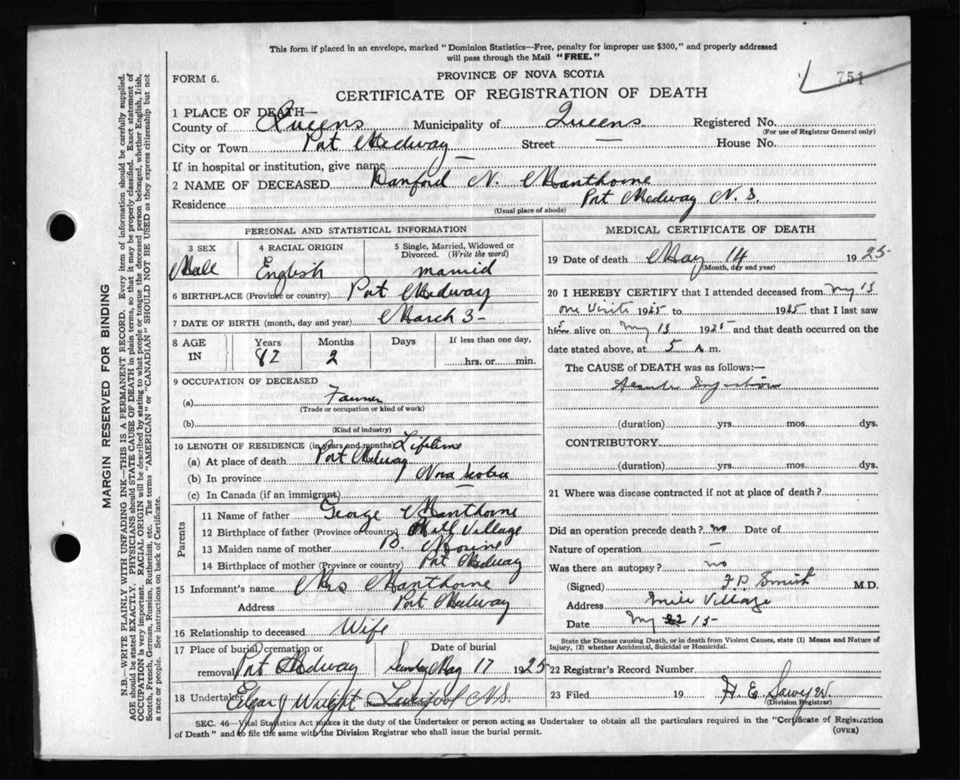 This form if placed in an envelope, marked "Dominion Statistics—Free, penalty for improper use $300," and properly addressed
will pass through the Mail "FREE."
FORM 6.
PROVINCE OF NOVA SCOTIA
751
CERTIFICATE OF REGISTRATION OF DEATH
1 PLACE OF DEATH—
County of Queens Municipality of Queens Registered No.
(For use of Registrar General only)
City or Town Port Medway Street — House No.
If in hospital or institution, give name —
2 NAME OF DECEASED Danford N. Manthorne
Residence Port Medway N. S.
(Usual place of abode)
PERSONAL AND STATISTICAL INFORMATION
3 SEX 4 RACIAL ORIGIN 5 Single, Married, Widowed or Divorced. (Write the word)
Male English married
6 BIRTHPLACE (Province or country) Port Medway
7 DATE OF BIRTH (month, day and year) March 3-
8 AGE IN Years Months Days If less than one day,
82 2 hrs. or min.
9 OCCUPATION OF DECEASED
(a) Farmer
(Trade or occupation or kind of work)
(b)
(Kind of industry)
10 LENGTH OF RESIDENCE (in years and months) Lifetime
(a) At place of death Port Medway
(b) In province Nova Scotia
(c) In Canada (if an immigrant)
Parents
11 Name of father George Manthorne
12 Birthplace of father (Province or country) Mill Village
13 Maiden name of mother B.
14 Birthplace of mother (Province or country) Port Medway
15 Informant's name Mrs Manthorne
Address Port Medway
16 Relationship to deceased Wife
17 Place of burial, cremation or removal Port Medway
Date of burial
May 17 1925
18 Undertaker Edgar J Wright Liverpool N.S.
MEDICAL CERTIFICATE OF DEATH
19 Date of death May 14 1925
(Month, day and year)
20 I HEREBY CERTIFY that I attended deceased from My 13
one visit 1925 to 1925 that I last saw
him alive on My 13 1925 and that death occurred on
date stated above, at 5 A m.
The CAUSE of DEATH was as follows:—
(duration) yrs. mos. dys.
CONTRIBUTORY
(duration) yrs. mos. dys.
21 Where was disease contracted if not at place of death?
Did an operation precede death? no Date of
Nature of operation —
Was there an autopsy? no
(Signed) Smith M.D.
Address Mill Village
Date My 15-
State the Disease causing Death, or in death from Violent Causes, state (1) Means and Nature of
Injury, (2) whether Accidental, Suicidal or Homicidal.
22 Registrar's Record Number
23 Filed 19 H. E. Sawyer
(Division Registrar)
SEC. 46—Vital Statistics Act makes it the duty of the Undertaker or person acting as Undertaker to obtain all the particulars required in the "Certificate of Registration
of Death" and to file the same with the Division Registrar who shall issue the burial permit.
(OVER)
MARGIN RESERVED FOR BINDING
N.B.—WRITE PLAINLY WITH UNFADING INK—THIS IS A PERMANENT RECORD. Every item of information should be carefully supplied.
AGE should be stated EXACTLY. PHYSICIANS should STATE CAUSE OF DEATH in plain terms, so that it may be properly classified. Exact statement of
OCCUPATION is very important. RACIAL ORIGIN will be described by stating to what people or tongue the deceased person belonged, whether English, Irish,
Scotch, French, German, Russian, Ruthenian, etc. The terms "AMERICAN" or "CANADIAN" SHOULD NOT BE USED as they express citizenship but not
a race or people. See instructions on back of Certificate.